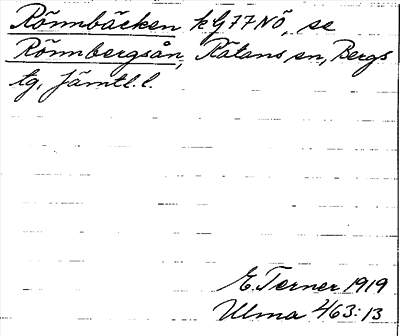 Rönnbäcken kG77NÖ, se
Rönnbergsån, Rätans sn, Bergs
tg. Jämtl.l.
E. Terner 1919
Ulma 463:13